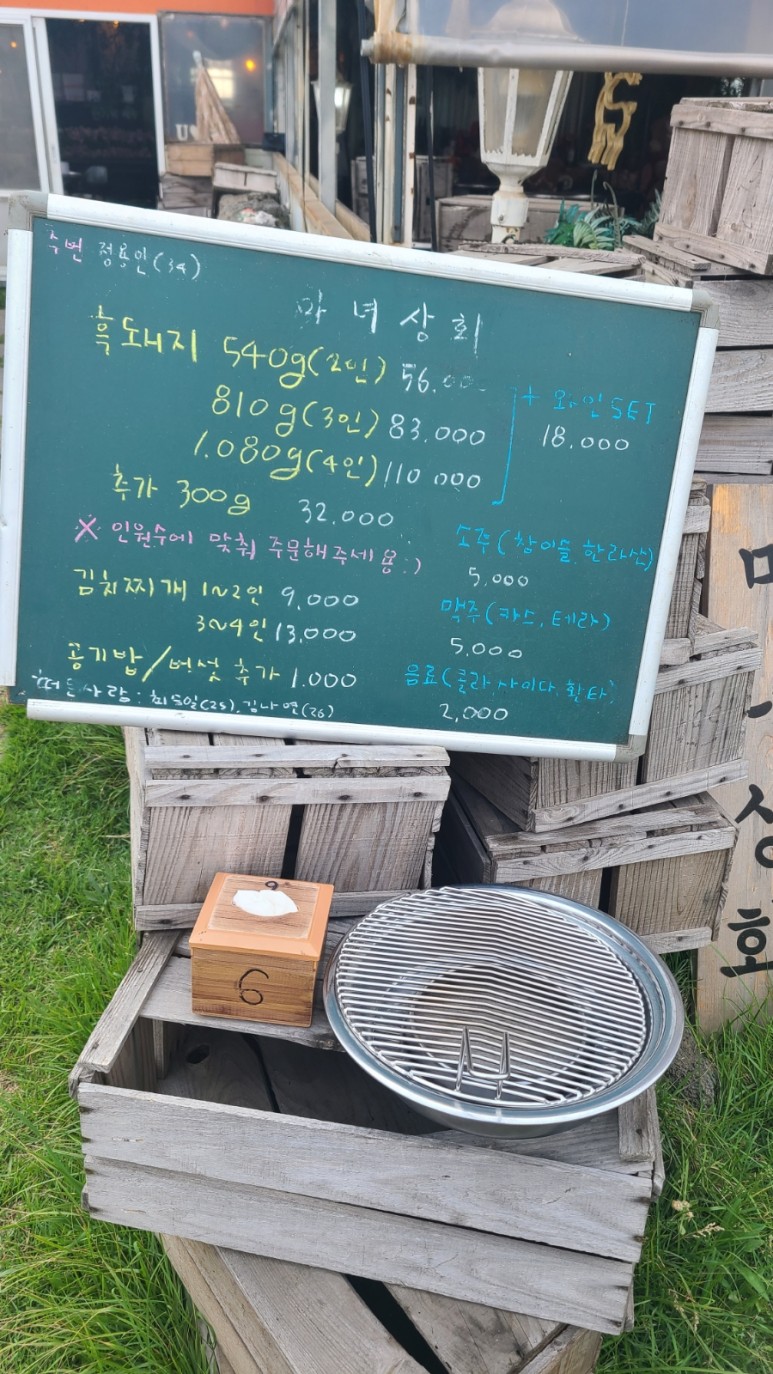 주번 정용인(34)
마녀상회
흑돼지 540g(2인) 56.000
810g(3인) 83.000
1.080g(4인) 110 000
+ 와인 SET
18.000
추가 300g 32.000
X 인원수에 맞춰 주문해주세용:)
김치찌개 1~2인 9,000
3~4인 13,000
공기밥/버섯 추가 1.000
떠든사람: 최 일(25), 김나연(26)
소주(참이슬.한라산)
5,000
맥주(카스, 테라)
5,000
음료(콜라,사이다.환타)
2,000
6
상회